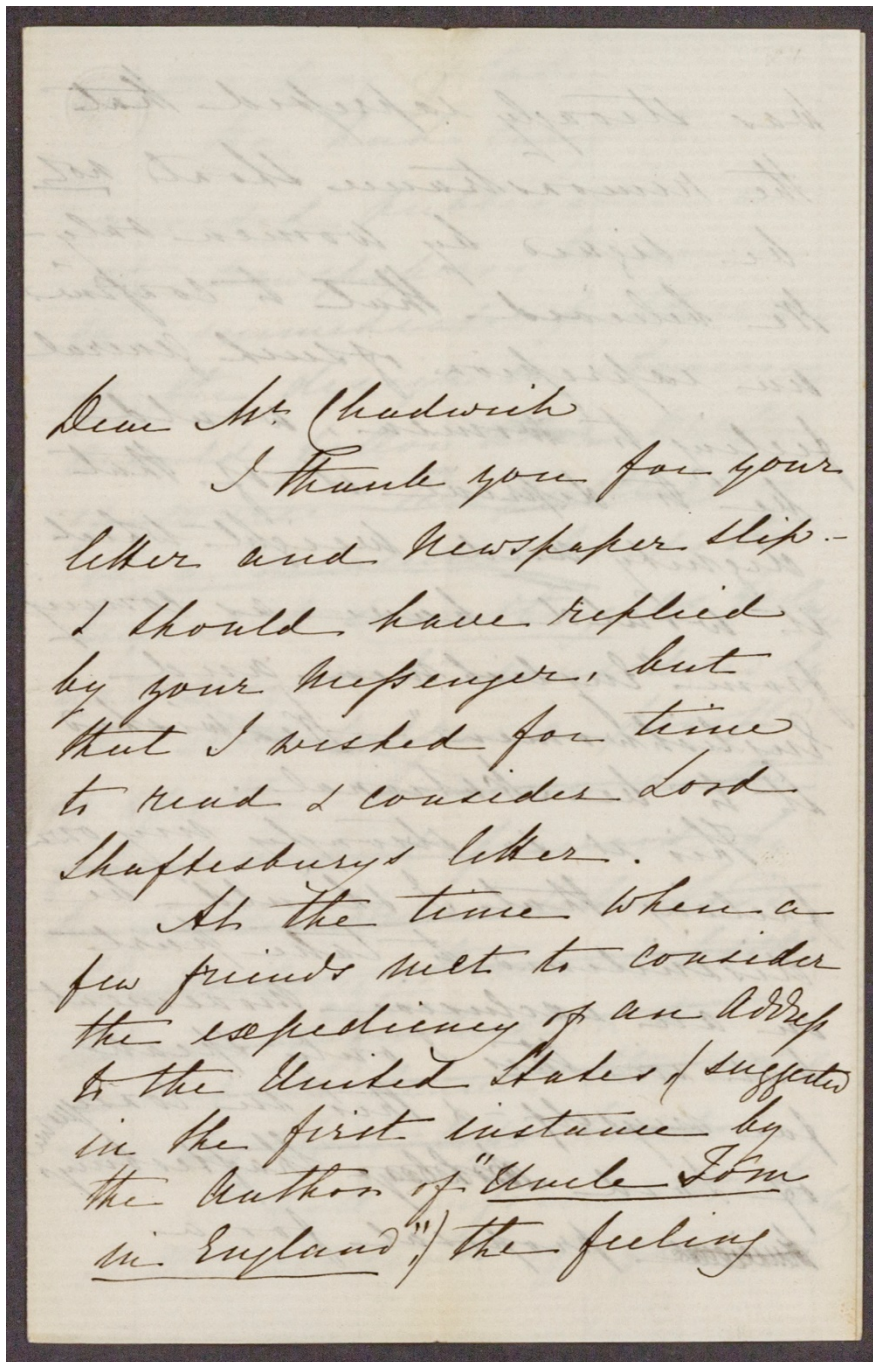 Dear Mr. Chadwick
I thank you for your
letter and Newspaper slip. -
I should have replied
by your Messenger, but
that I wished for time
to read & consider Lord
Shaftesburys letter.
At the time when a
few friends met to consider
the expediency of an Address
to the United States, (suggested
in the first instance by
the Author of "Uncle Tom
in England",) the feeling